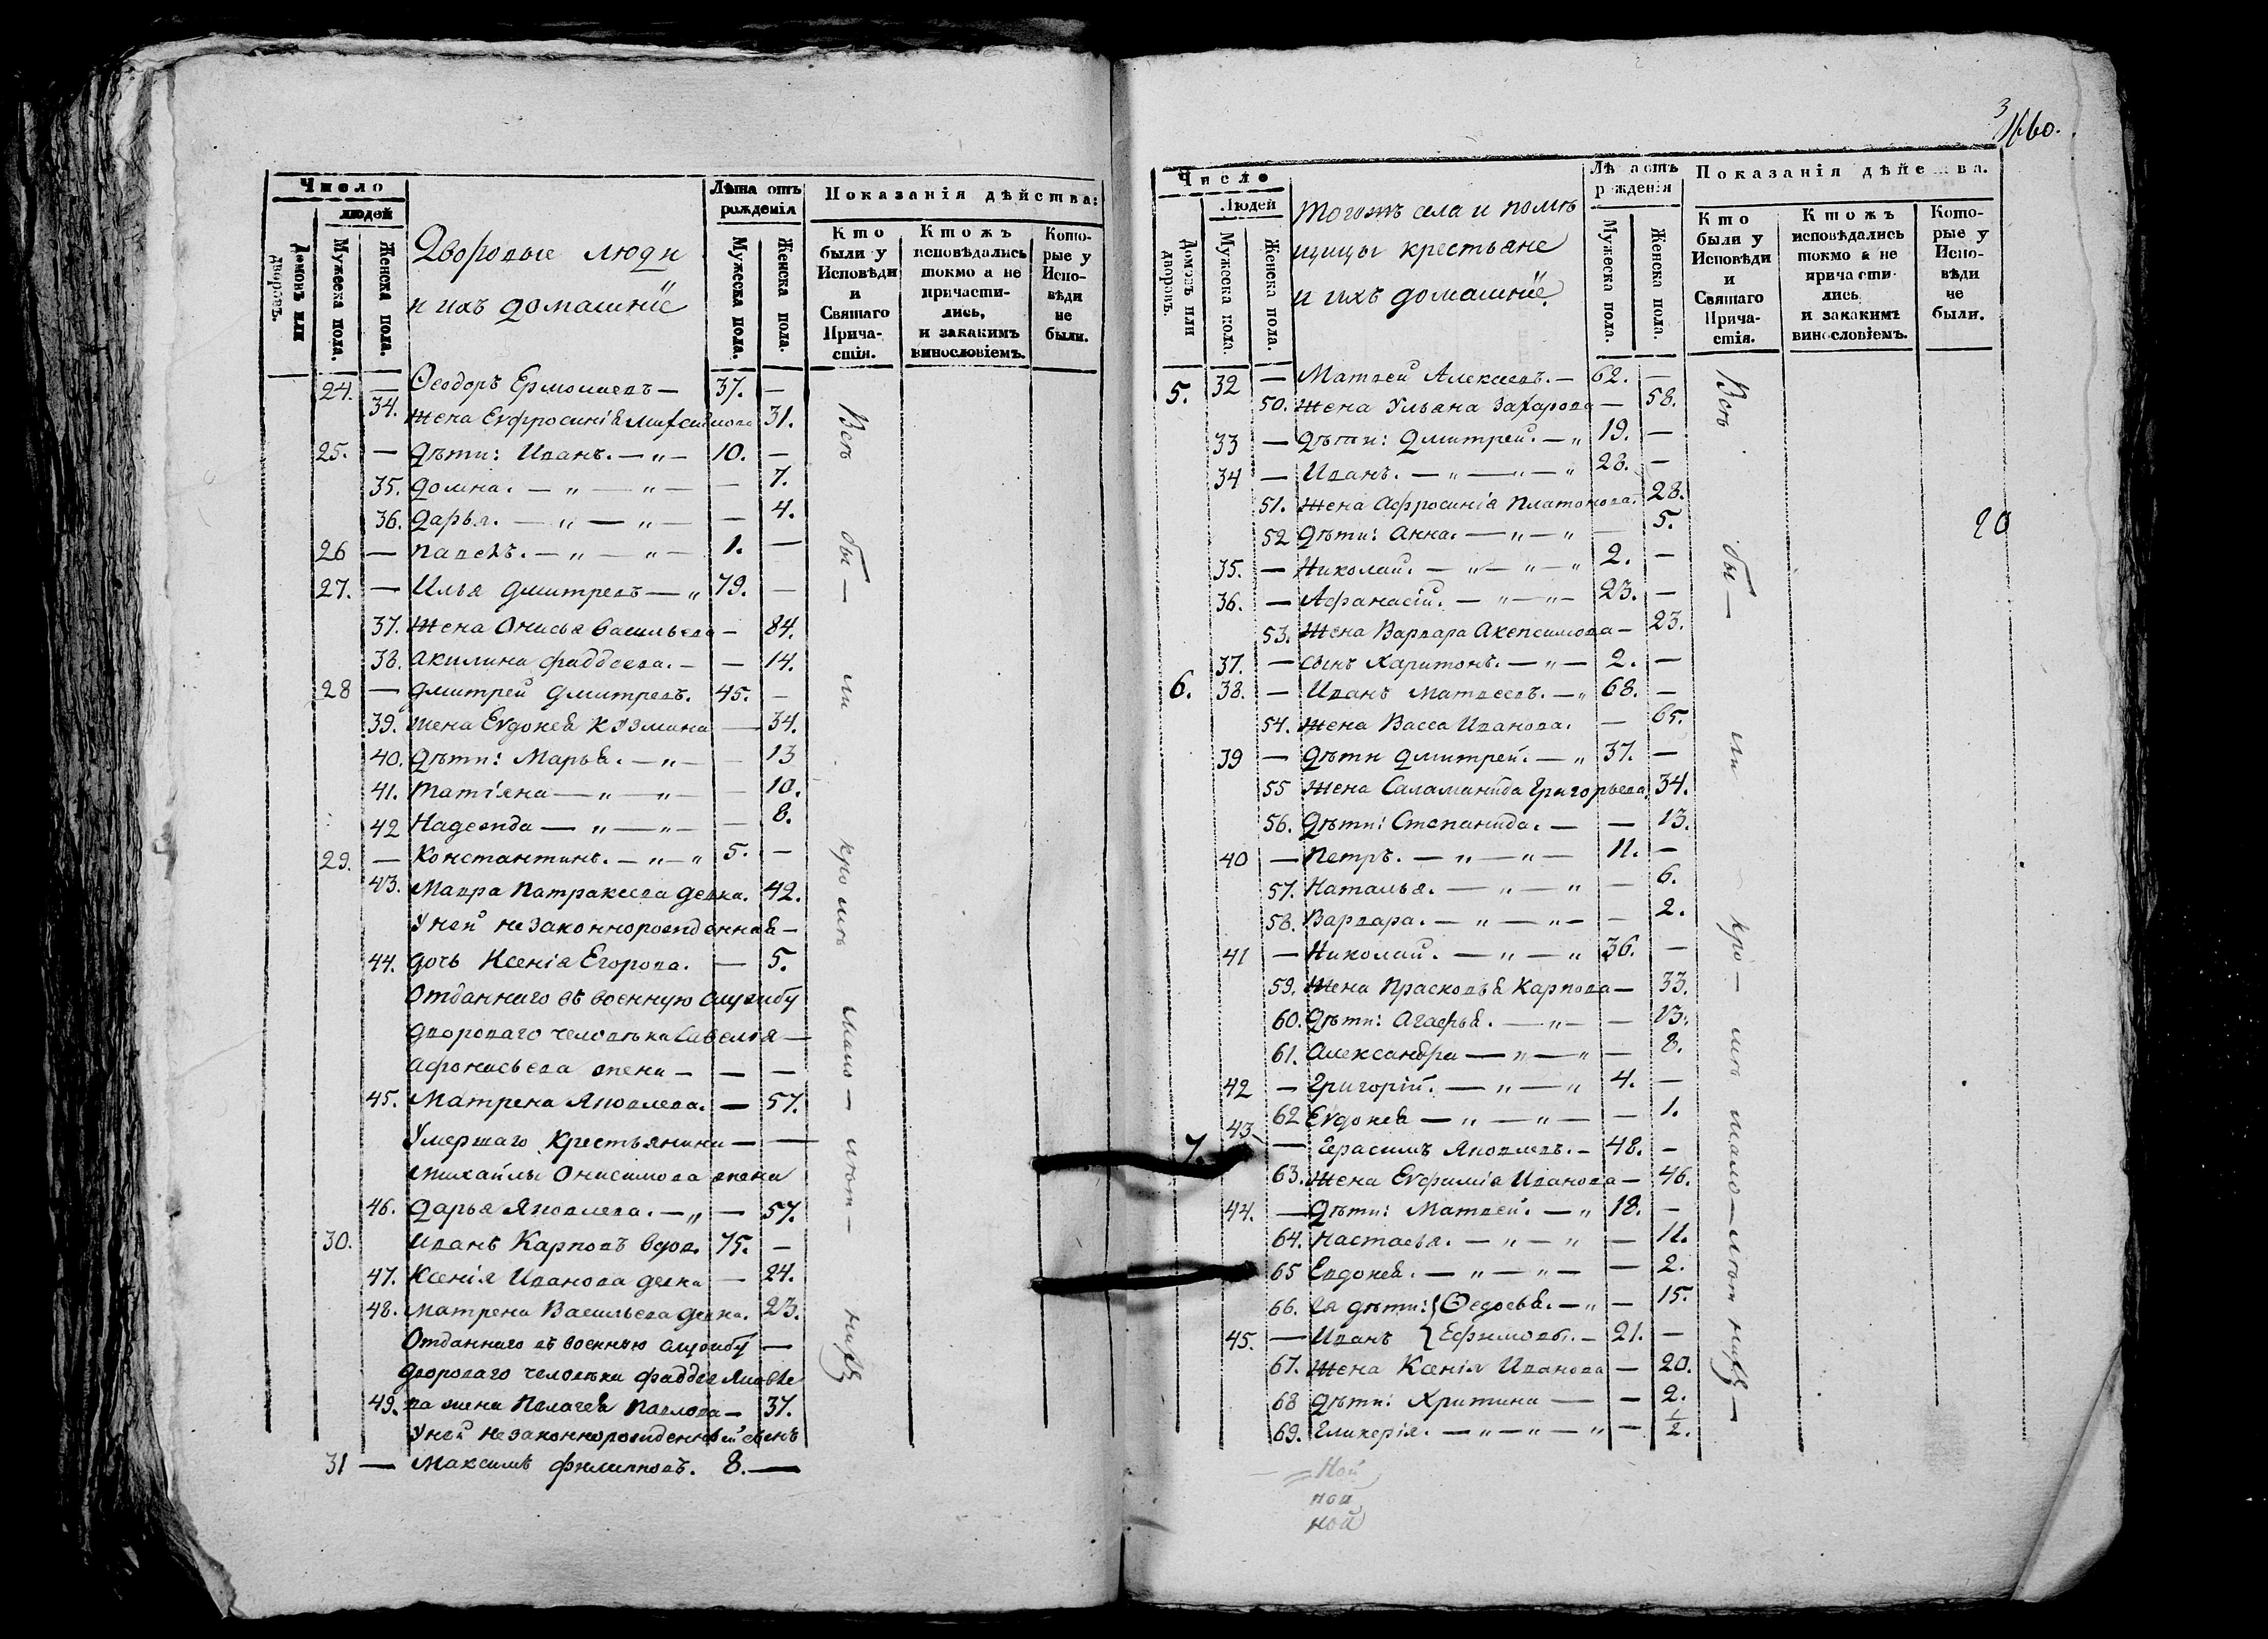 Число
людей
Домовъ или дворовъ.
Мужеска пола.
Женска пола.
Дворовые люди
и ихъ домашнїе
Лѣта отъ рожденїя
Мужеска пола.
Женска пола.
Показанїя дѣйства:
Кто были у Исповѣди и Святаго Причастїя.
Ктожъ исповѣдались токмо а не причастились, и закакимъ винословїемъ.
Которые у Исповѣди не были.
24. — Ѳеодоръ Ермолаевъ — 37. —
34. Жена Еѵфросинїя Максимова 31.
25. — Дѣти: Иванъ. — „ — 10. —
35. Домна. — „ — „ — — 7.
36. Дарья. — „ — „ — — 4.
26 — Павелъ. — „ — „ — 1. —
27. — Илья Дмитревъ — „ 79. —
37. Жена Онисья Васильева — 84.
38. Акилина Фаддеева. — — 14.
28 — Дмитрей Дмитревъ. 45. —
39. Жена Еѵдокея Кузмина — 34.
40. Дѣти: Марья. — „ — — 13
41. Татїяна — „ — „ — — 10.
42 Надежда — „ — „ — — 8.
29. — Константинъ. — „ — „ 5. —
43. Мавра Патракеева девка. 42.
У ней незаконнорожденная —
44. дочь Ксенїя Егорова. — 5.
Отданнаго въ военную службу
двороваго человѣка Савелья —
Афонасьева жена — — —
45. Матрена Яковлева. — 57.
Умершаго крестьянина — —
Михайлы Онисимова жена
46. Дарья Яковлева. — „ — 57.
30. Иванъ Карповъ вдов. 75. —
47. Ксенїя Иванова девка — 24.
48. Матрена Васильева девка. 23.
Отданнаго въ военную службу —
двороваго человѣка Фаддея Яковле
49. ва жена Пелагея Павлова — 37.
У ней незаконнорожденный сынъ
31 — Максимъ Филипповъ. 8. —
Всѣ бы — ли кро мѣ мало — лѣт — нихъ
3
1660.
Число
Людей
Домовъ или дворовъ.
Мужеска пола.
Женска пола.
Тогожъ села и помѣ
щицы крестьяне
и ихъ домашнїе.
Лѣта отъ рожденїя
Мужеска пола.
Женска пола.
Показанїя дѣйства.
Кто были у Исповѣди и Святаго Причастїя.
Ктожъ исповѣдались токмо а не причастились, и закакимъ винословїемъ.
Которые у Исповѣди не были.
5. 32 — Матвей Алексеевъ. — 62. —
50. Жена Ульяна Захарова — 58.
33 — Дѣти: Дмитрей. — „ 19. —
34 — Иванъ. — „ — „ — „ 28. —
51. Жена Афросинїя Платонова. 28.
52 Дѣти: Анна. — „ — „ — 5.
20
35. — Николай. — „ — „ — „ 2. —
36. — Афанасїй. — „ — „ — 23. —
53. Жена Варвара Акепсимова — 23.
37. — сынъ Харитонъ. — „ — 2. —
6. 38. — Иванъ Матвеевъ. — „ 68. —
54. Жена Васса Иванова. — 65.
39 — Дѣти Дмитрей. — „ 37. —
55 Жена Саламанида Григорьева. 34.
56. Дѣти: Степанида. — — 13.
40 — Петръ. — „ — „ — 11. —
57. Наталья. — „ — „ — 6.
58. Варвара. — „ — „ — — 2.
41 — Николай. — „ — „ 36. —
59. Жена Прасковья Карпова — 33.
60. Дѣти: Агафья. — „ — — 13.
61. Александра — „ — „ — 8.
42 — Григорїй. — „ — „ 4. —
62 Еѵдокея — „ — „ — — 1.
7. 43. — Герасимъ Яковлевъ. — 48. —
63. Жена Еѵфимїя Иванова — 46.
44. — Дѣти: Матвей. — „ 18. —
64. Настасья. — „ — „ — 11.
65 Евдокея. — „ — „ — — 2.
66. Ея дѣти: { Ѳедосья. — „ — 15.
45. — Иванъ { Ефимовы. — 21. —
67. Жена Ксенїя Иванова — 20.
68 Дѣти: Христина — — 2.
69. Гликерїя. — „ — „ — „ — 1/2.
Всѣ бы — ли кро — мѣ мало — лѣт нихъ —
Ной
ной
ной